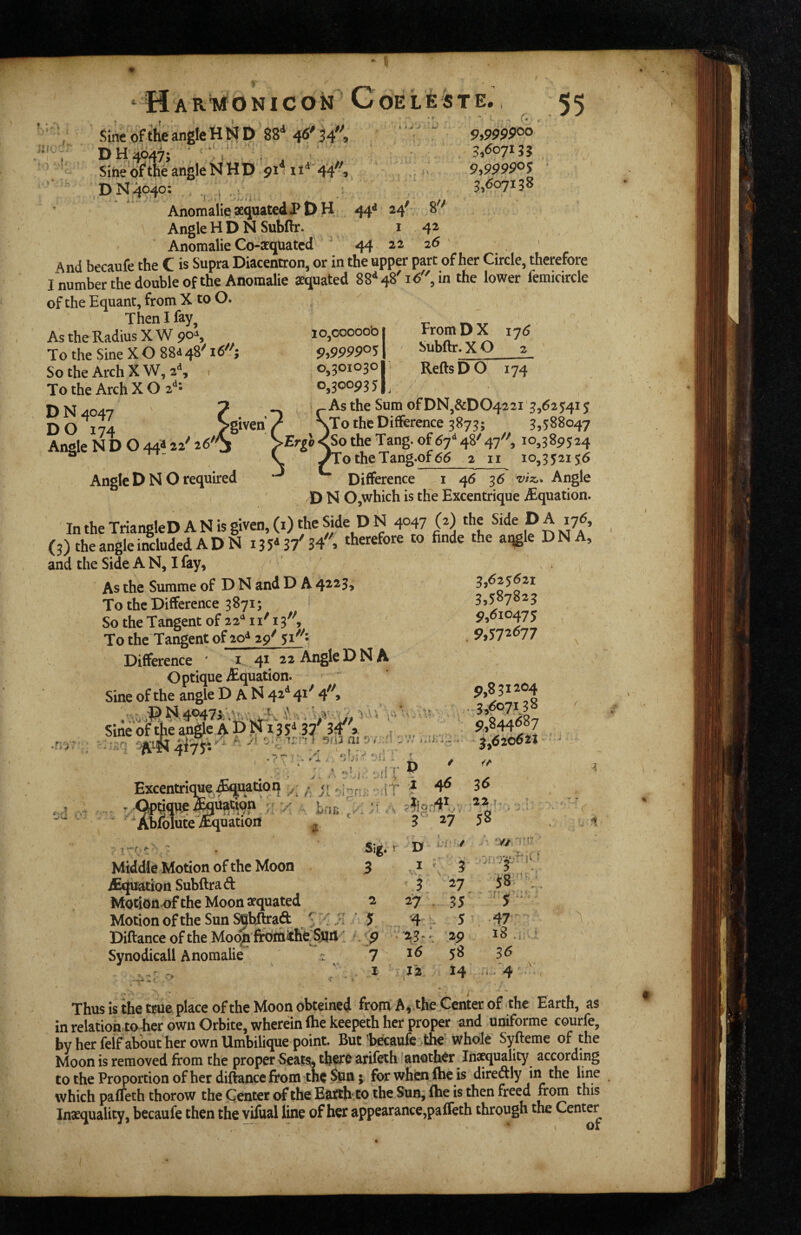 HARMONICON COELESTE. 55
Sine of the angle H N D 88ᵈ 46′ 34″, 9,999900
D H 4047; 3,607133
Sine of the angle N H D 91ᵈ 11ᵈ 44″, 9,999905
D N 4040: 3,607138
Anomalie æquated P D H 44ᵈ 24′ 8″
Angle H D N Subſtr. 1 42
Anomalie Co-æquated 44 22 26
And becauſe the ☾ is Supra Diacentron, or in the upper part of her Circle, therefore
I number the double of the Anomalie æquated 88ᵈ 48′ 16″, in the lower ſemicircle
of the Equant, from X to O.
Then I ſay,
As the Radius X W 90ᵈ, 10,000000
To the Sine X O 88ᵈ 48′ 16″; 9,999905
So the Arch X W, 2ᵈ, 0,301030
To the Arch X O 2ᵈ: 0,300935
From D X 176
Subſtr. X O 2
Reſts D O 174
D N 4047
D O 174
Angle N D O 44ᵈ 22′ 26″
given
Angle D N O required
Ergo
As the Sum of DN,&DO4221 3,625415
To the Difference 3873; 3,588047
So the Tang. of 67ᵈ 48′ 47″, 10,389524
To the Tang.of 66 2 11 10,352156
Difference 1 46 36 viz. Angle
D N O,which is the Excentrique Æquation.
In the Triangle D A N is given, (1) the Side D N 4047 (2) the Side D A 176,
(3) the angle included A D N 135ᵈ 37′ 34″, therefore to finde the angle D N A,
and the Side A N, I ſay,
As the Summe of D N and D A 4223, 3,625621
To the Difference 3871; 3,587823
So the Tangent of 22ᵈ 11′ 13″, 9,610475
To the Tangent of 20ᵈ 29′ 51″: 9,572677
Difference 1 41 22 Angle D N A
Optique Æquation.
Sine of the angle D A N 42ᵈ 41′ 4″, 9,831204
D N 4047; 3,607138
Sine of the angle A D N 135ᵈ 37′ 34″, 9,844687
A N 4175: 3,620621
D ′ ″
Excentrique Æquation 1 46 36
Optique Æquation 1 41 22
Abſolute Æquation 3 27 58
Sig. D ′ ″
Middle Motion of the Moon 3 1 3 3
Æquation Subſtract 3 27 58
Motion of the Moon æquated 2 27 35 5
Motion of the Sun Subſtract 5 4 5 47
Diſtance of the Moon from the Sun 9 23 29 18
Synodicall Anomalie 7 16 58 36
1 12 14 4
Thus is the true place of the Moon obteined from A, the Center of the Earth, as
in relation to her own Orbite, wherein ſhe keepeth her proper and uniforme courſe,
by her ſelf about her own Umbilique point. But becauſe the whole Syſteme of the
Moon is removed from the proper Seats, there ariſeth another Inæquality according
to the Proportion of her diſtance from the Sun; for when ſhe is directly in the line
which paſſeth thorow the Center of the Earth to the Sun, ſhe is then freed from this
Inæquality, becauſe then the viſual line of her appearance,paſſeth through the Center
of